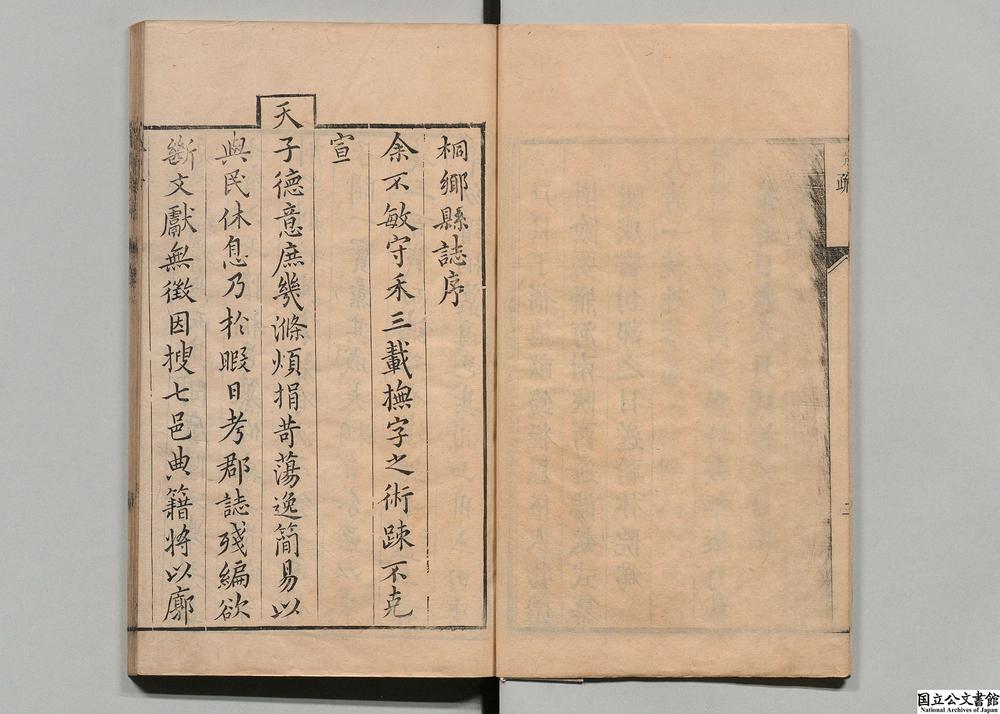 疏
桐鄉縣誌序
余不敏守禾三載撫字之術踈不克
宣
天子德意庶幾滌煩捐苛蕩逸簡易以
與民休息乃於暇日考郡誌殘編欲
斷文獻無徵因搜七邑典籍將以廓
国立公文書館
National Archives of Japan